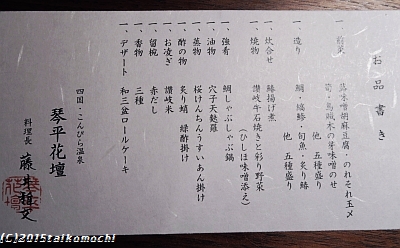 お品書き
一、前菜　蕗味噌胡麻豆腐・のれそれ玉〆
筍・烏賊木の芽味噌のせ
他　五種盛り
一、造り　鯛・縞鯵・旬魚・炙り鰆
他　五種盛り
一、炊合せ　鰊揚げ煮
一、焼物　讃岐牛石焼きと彩り野菜
（ひしほ味噌添え）
一、強肴　鯛しゃぶしゃぶ鍋
一、油物　穴子天麩羅
一、蒸物　桜けんちんうすいあん掛け
一、酢の物　炙り蛸　緑酢掛け
一、お凌ぎ　讃岐米
一、留椀　赤だし
一、香物　三種
一、デザート　和三盆ロールケーキ
四国・こんぴら温泉
琴平花壇
料理長　藤
(C)2015taikomochi